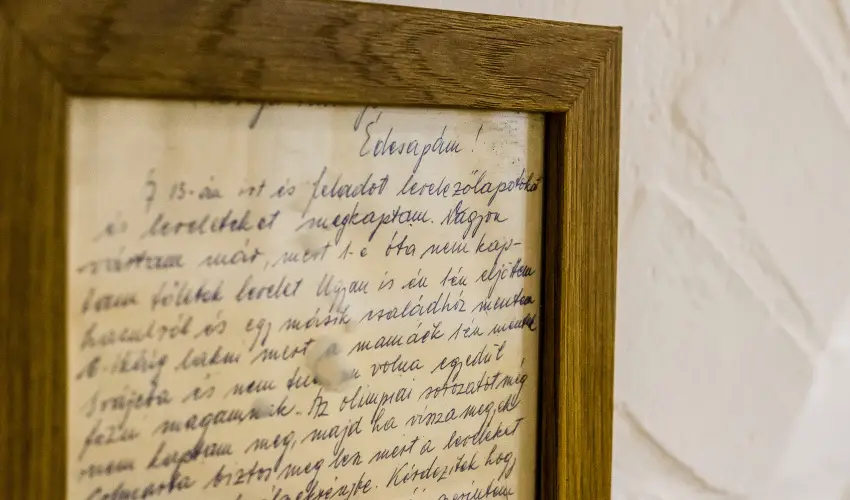 Édesapám!
Á 15-én írt és feladot levelezőlapotokat
és leveleteket megkaptam. Nagyon
vártam már, mert 1-e óta nem kap-
tam tőletek levelet Ugyan is én 1én eljöttem
és egy másik családhóz mentem
lakni mert a mamáék 1én mentek
Svájcba és nem volna egyedűl
főzni magamnak. Az olimpiai sorozatot még
nem kaptam meg, majd ha vissza megyek
biztos meg lesz mert a leveleket
Kérdezitek hogy